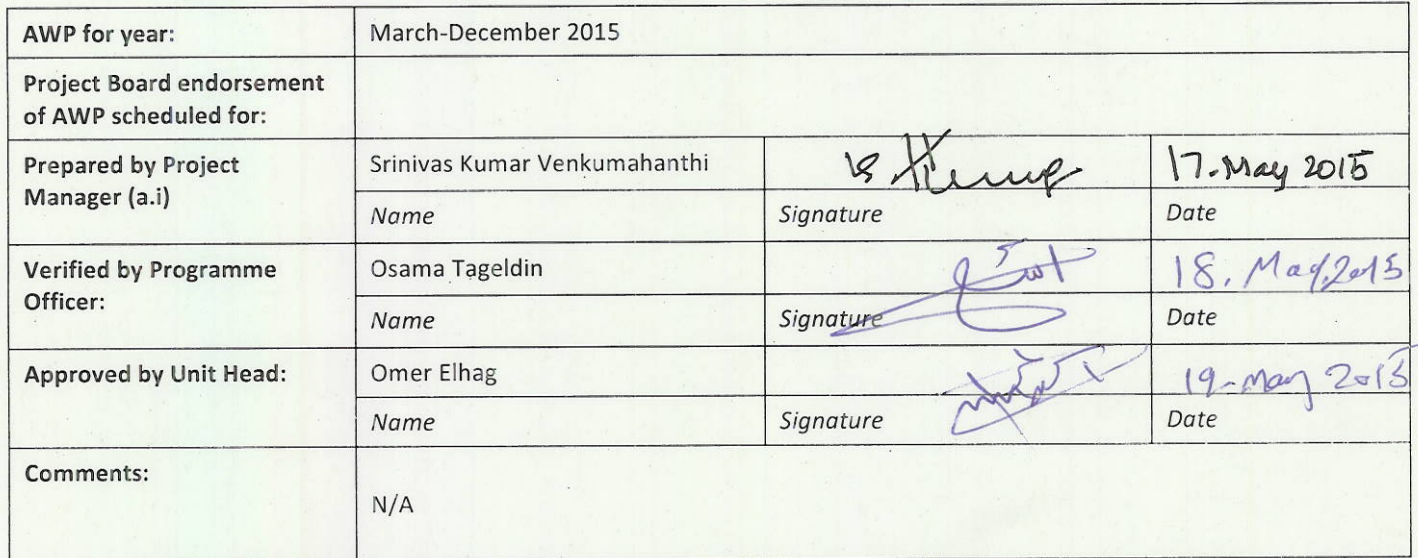 AWP for year: March-December 2015
Project Board endorsement
of AWP scheduled for:
Prepared by Project
Manager (a.i)
Srinivas Kumar Venkumahanthi 17-May 2015
Name Signature Date
Verified by Programme
Officer:
Osama Tageldin 18. May.2015
Name Signature Date
Approved by Unit Head: Omer Elhag 19-May 2015
Name Signature Date
Comments:
N/A